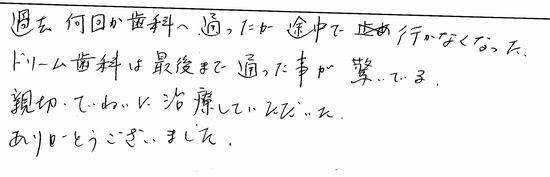 過去 何回か歯科へ 通ったが 途中で 止め 行かなくなった.
ドリーム歯科は最後まで 通った事が 驚いてる.
親切.ていねいに治療していただいた.
ありがとうございました.